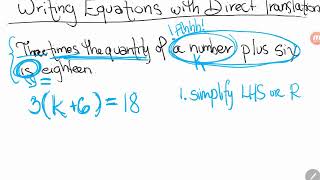 Writing Equations with Direct Translation
! Ahhh!
Three times the quantity of a number plus six
is eighteen.
=
K
3(K+6)=18
1. simplify LHS or R